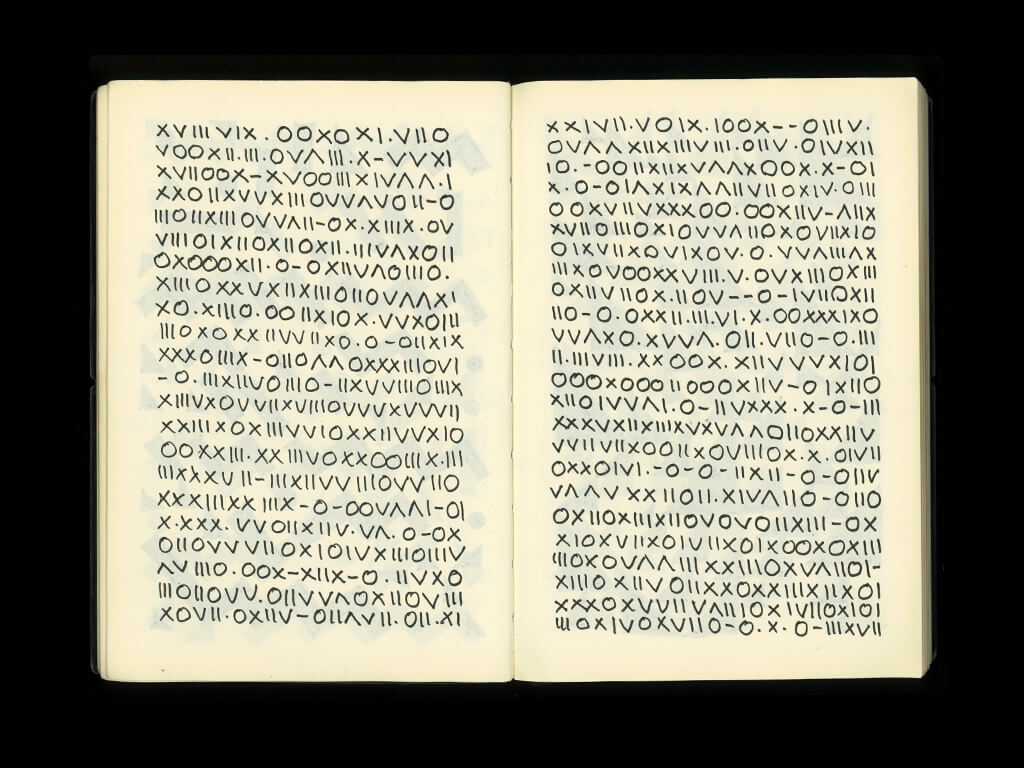 XVIII VIX . OOXO XI . VIIO
VOOXII . III . OVΛIII . X – VVXI
XVIIOOX – XVOOIIIXIVΛΛ . I
XXOIIXVVXIIIOVVΛVOII – O
IIIOIIXIIIOVVΛII – OX . XIIIX . OV
VIIIOIXIIOXIIOXII . IIIVΛXOII
OXOOOXII . O – OXIIVΛOIIIO .
XIIIOXXVXIIXIIIOIIOVΛΛXI
XO . XIIIO . OOIIXIOX . VVXOIII
IIIOXOXXIIVVIIXO . O – OIIXIX
XXXOIIIX – OIIOΛΛOXXXIIIOVI
– O . IIIXIIVOIIIO – IIXVVIIIOIIIX
XIIIVXOVVIIXVIIIOVVVXVVVII
XXIIIXOXIIIVVIOXXIIVVXIO
OOXXIII . XXIIIVOXXOOIIIX . III
IIIXXXVII – IIIXIIVVIIIOVVIIO
XXXIIIXXIIIX – O – OOVΛΛI – OI
X . XXX . VVOIIXIIV . VΛ . O – OX
OIIOVVVIIOXIOIVXIIIOIIIV
ΛVIIIO . OOX – XIIX – O . IIVXO
IIIOIIOVV . OIIVVΛOXIIOVIII
XOVII . OXIIV – OIIΛVII . OII . XI
XXIVII . VOIX . IOOX – – OIIIV .
OVΛΛXIIXIIIVIII . OIIV . OIVXII
IO . – OOIIXIIXVΛΛOOX . X – OI
X . O – OIΛXIXΛΛIIVIIOXIV . OIII
OOXVIIVXXXOO . OOXIIV – ΛIIX
XVIIOIIIOXIOVVIIXOXVOIIXIO
OIXVIIXOVIVOXOV . O . VVXIIO
IIIXOVOOXXVIII . V . OVXIIIOXIII
OXIIVIIOX . IIOV – – O – IVIIOXII
IIO – O . OXXII . III . VI . X . OOXXXIXO
VVΛXO . XVVΛ . OII . VIIO – O . III
II . IIIVIII . XXOOX . XIIVVVXIOI
OOOXOOOIIOOOXIIV – OIXIIO
XIIOIVVΛI . O – IIVXXX . X – O – III
XXXVXIIXIIIXVXVΛΛOIIOXXIIV
VVIIVIIXOOIIXOVIIIOX . X . OIVII
OXXOIVI . – O – O – IIXII – O – OIIV
VΛΛVXXIIOII . XIVΛIIO – OIIO
OXIIOXIIIXIIOVOVOIIXIII – OX
XIOXVVXIIOIIVIIXOIXOOXOXIII
IIIOXOVΛOXIIIOXXIIIOXVΛIIOI –
XIIIOXIIVOIIXXOXXIIIXIIXOI
XXXOXVVIIVΛIIOXIVIIOXIOI
IIIOXIVOXVIIO – O . X . O – IIIXVII